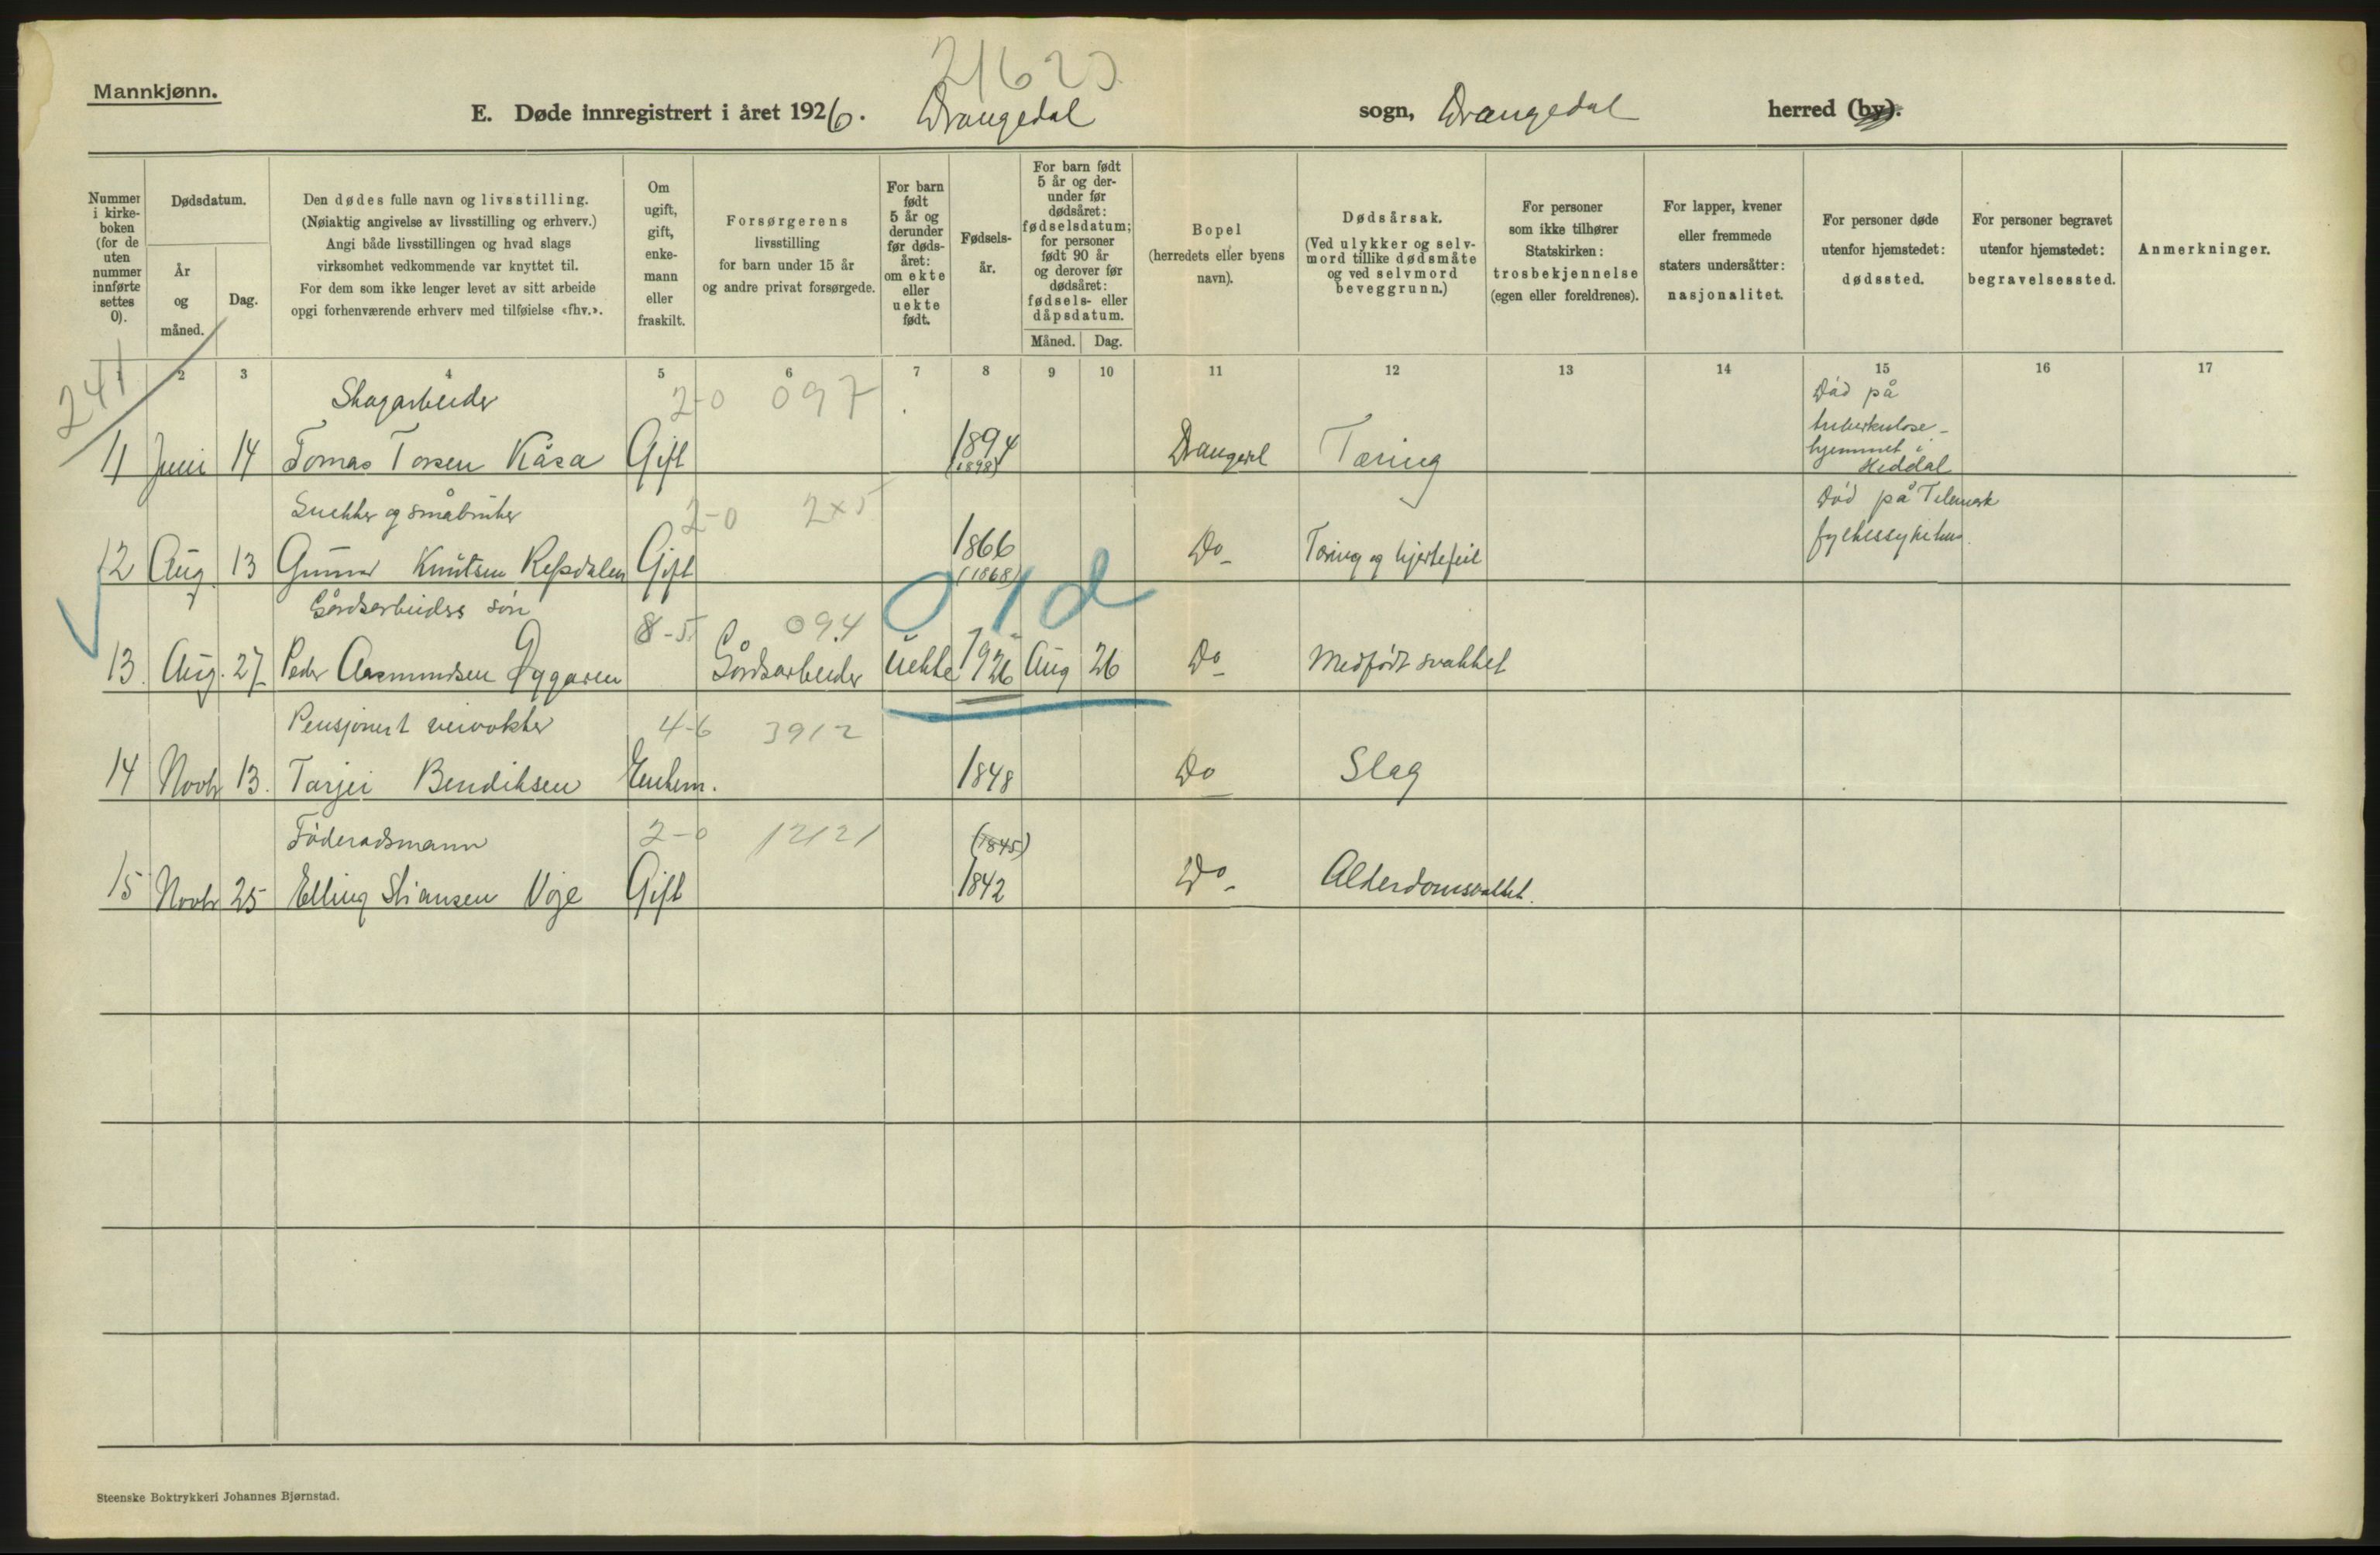 21623
Mannkjønn.
E. Døde innregistrert i året 1926. Drangedal sogn, Drangedal herred (by).
Nummer i kirke- boken (for de uten nummer innførte settes 0).
Dødsdatum.
År og måned.
Dag.
Den dødes fulle navn og livsstilling.
(Nøiaktig angivelse av livsstilling og erhverv.)
Angi både livsstillingen og hvad slags
virksomhet vedkommende var knyttet til.
For dem som ikke lenger levet av sitt arbeide
opgi forhenværende erhverv med tilføielse «fhv.».
Om ugift, gift, enke- mann eller fraskilt.
Forsørgerens
livsstilling
for barn under 15 år
og andre privat forsørgede.
For barn født 5 år og derunder før døds- året: om ekte eller uekte født.
Fødsels- år.
For barn født 5 år og der- under før dødsåret: fødselsdatum; for personer født 90 år og derover før dødsåret: fødsels- eller dåpsdatum.
Måned. Dag.
Bopel
(herredets eller byens
navn).
Dødsårsak.
(Ved ulykker og selv-
mord tillike dødsmåte
og ved selvmord
beveggrunn.)
For personer
som ikke tilhører
Statskirken:
trosbekjennelse
(egen eller foreldrenes).
For lapper, kvener
eller fremmede
staters undersåtter:
nasjonalitet.
For personer døde
utenfor hjemstedet:
dødssted.
For personer begravet
utenfor hjemstedet:
begravelsessted.
Anmerkninger.
241
2 3 4 5 6 7 8 9 10 11 12 13 14 15 16 17
Skogarbeider 2-0 097 Død på
tuberkulose-
hjemmet i
Heddal
11 Juni 14 Tomas Torsen Kåsa Gift 1894 (1898) Drangedal Tæring
Snekker og småbruker 2-0 2x5 Død på Telemark
fylkessykehus.
12 Aug. 13 Gunnar Knutsen Gift 1866 (1868) Do Tæring og hjertefeil
Gårdsarbeiders søn 8-5 094 01d
13. Aug. 27 Peder Aasmundsen Dygaren Gårdsarbeider Uekte 1926 Aug 26 Do Medfødt svakhet
Pensjonert veivokter 4-6 3912
14 Novbr 13. Tarjei Bendiksen Enkem. 1848 Do Slag
Føderadsmann 2-0 12121 (1845)
15 Novbr 25 Elling Stiansen Voje Gift 1842 Do Alderdomssvakhet.
Steenske Boktrykkeri Johannes Bjørnstad.